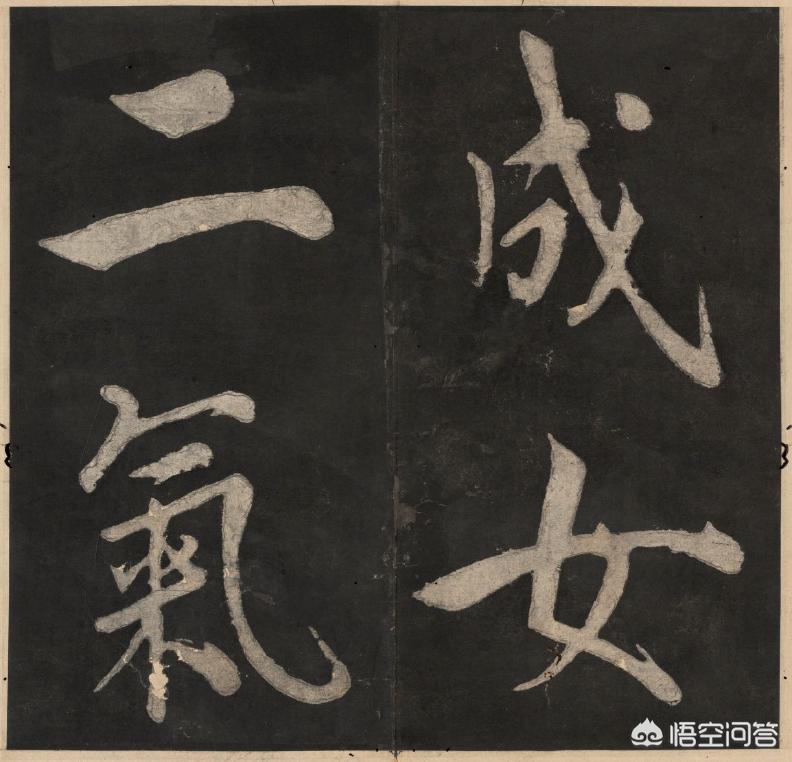 成女
二氣
悟空问答